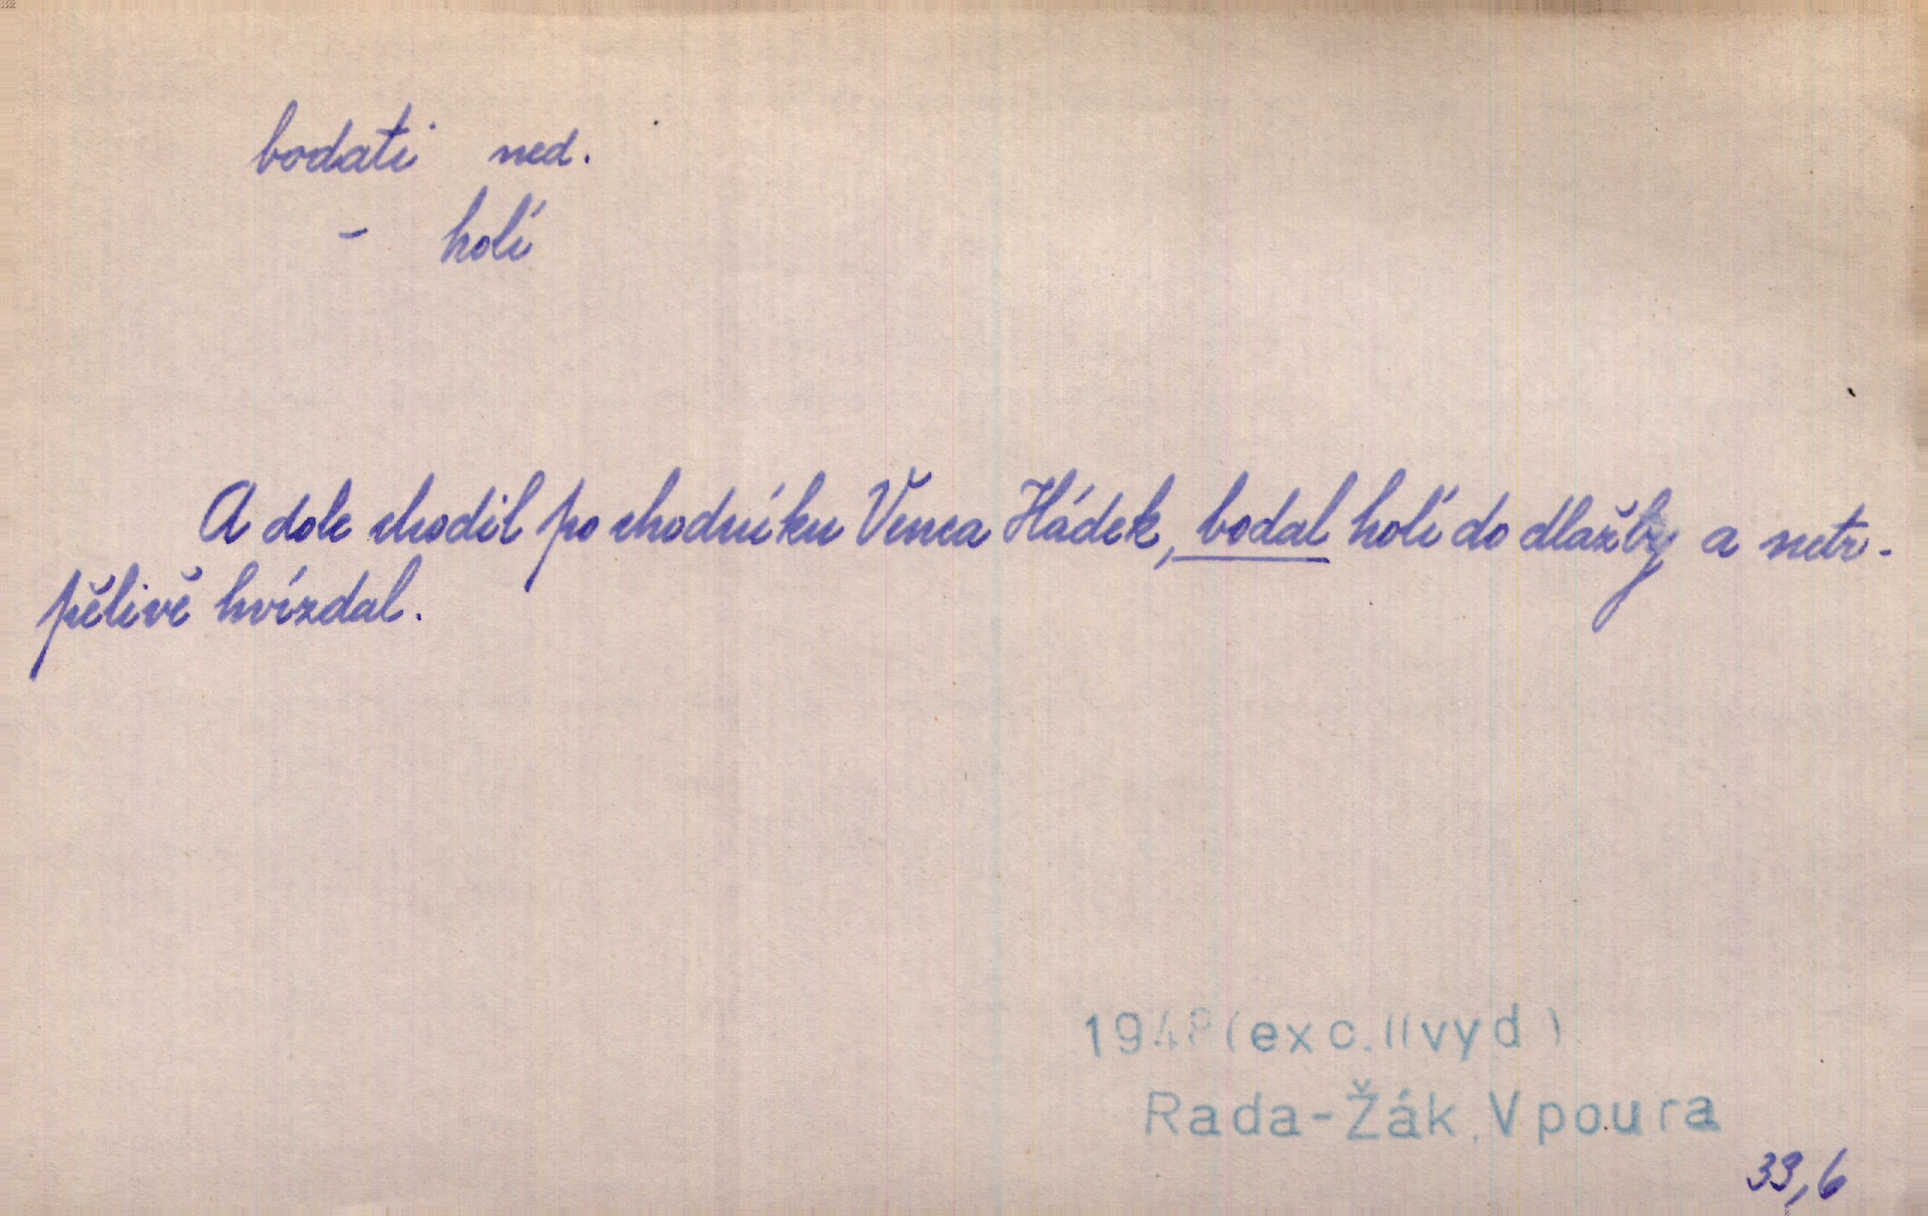 bodati ned.
- holí
A dole chodil po chodníku Venca Hádek, bodal holí do dlažby a netr-
pělivě hvízdal.
1948 (exc. II vyd.)
Rada-Žák, Vpoura
33,6